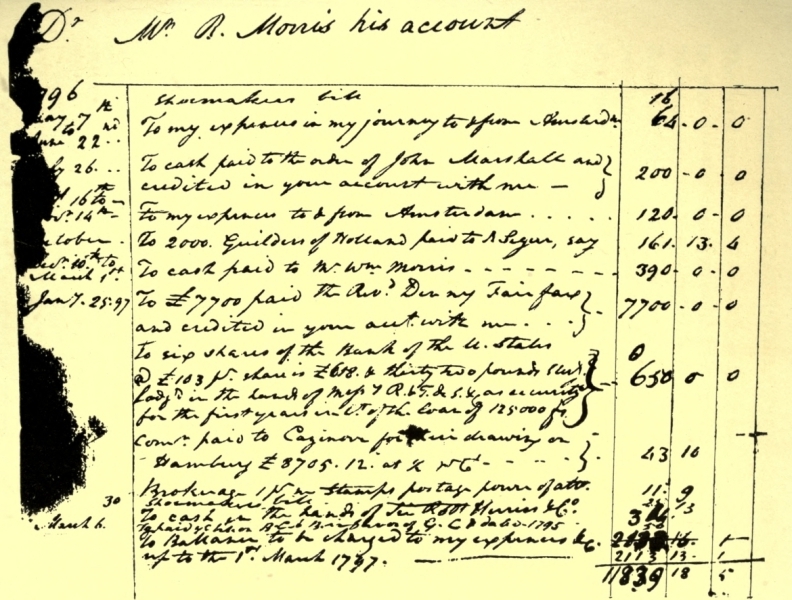 Dr Mr R. Morris his account
796 Shoemakers bill 16
ay 7th to To my expences in my journey to & from Amsterdm 64 - 0 - 0
une 22nd
y 26 To cash paid to the order of John Marshall and
credited in your account with me 200 - 0 - 0
16th to
14th To my expences to & from Amsterdam 120 - 0 - 0
ctober To 2000 Guilders of Holland paid to A Segur, say 161 - 13 - 4
10th to To cash paid to Mr. Wm Morris 390 - 0 - 0
March 1st
Jany. 25. 97 To £7700 paid the Revd. Denny Fairfax 7700 - 0 - 0
and credited in your acct. with me
To six shares of the Bank of the U. States
@ £103 pr. share is £618 & thirty two pounds 650 0 0
Lodgd in the hands of Messrs R. & as security
for the first years int. of the loan of 125000
Comn. paid to Cazenove for drawing on
Hamburg £8705.12. at 43 10
Brokerage Stamps postage power of atto. 11 9
30 Shoemakers bill
To cash in the hands of Herries & Co. 13
March 6.
To Ballance to be charged to my expences &c.
up to the 1st March 1797. 2113 13 1
11839 18 5